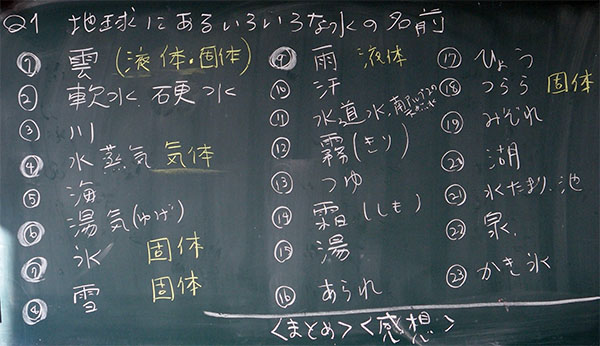 Q1 地球にあるいろいろな水の名前
① 雲 (液体・固体)
② 軟水 硬水
③ 川
④ 水蒸気 気体
⑤ 海
⑥ 湯気(ゆげ)
⑦ 氷 固体
⑧ 雪 固体
⑨ 雨 液体
⑩ 汗
⑪ 水道水、南アルプスの
⑫ 霧(きり)
⑬ つゆ
⑭ 霜(しも)
⑮ 湯
⑯ あられ
⑰ ひょう
⑱ つらら 固体
⑲ みぞれ
⑳ 湖
㉑ 水たまり、池
㉒ 泉
㉓ かき氷
<まとめ><感想>